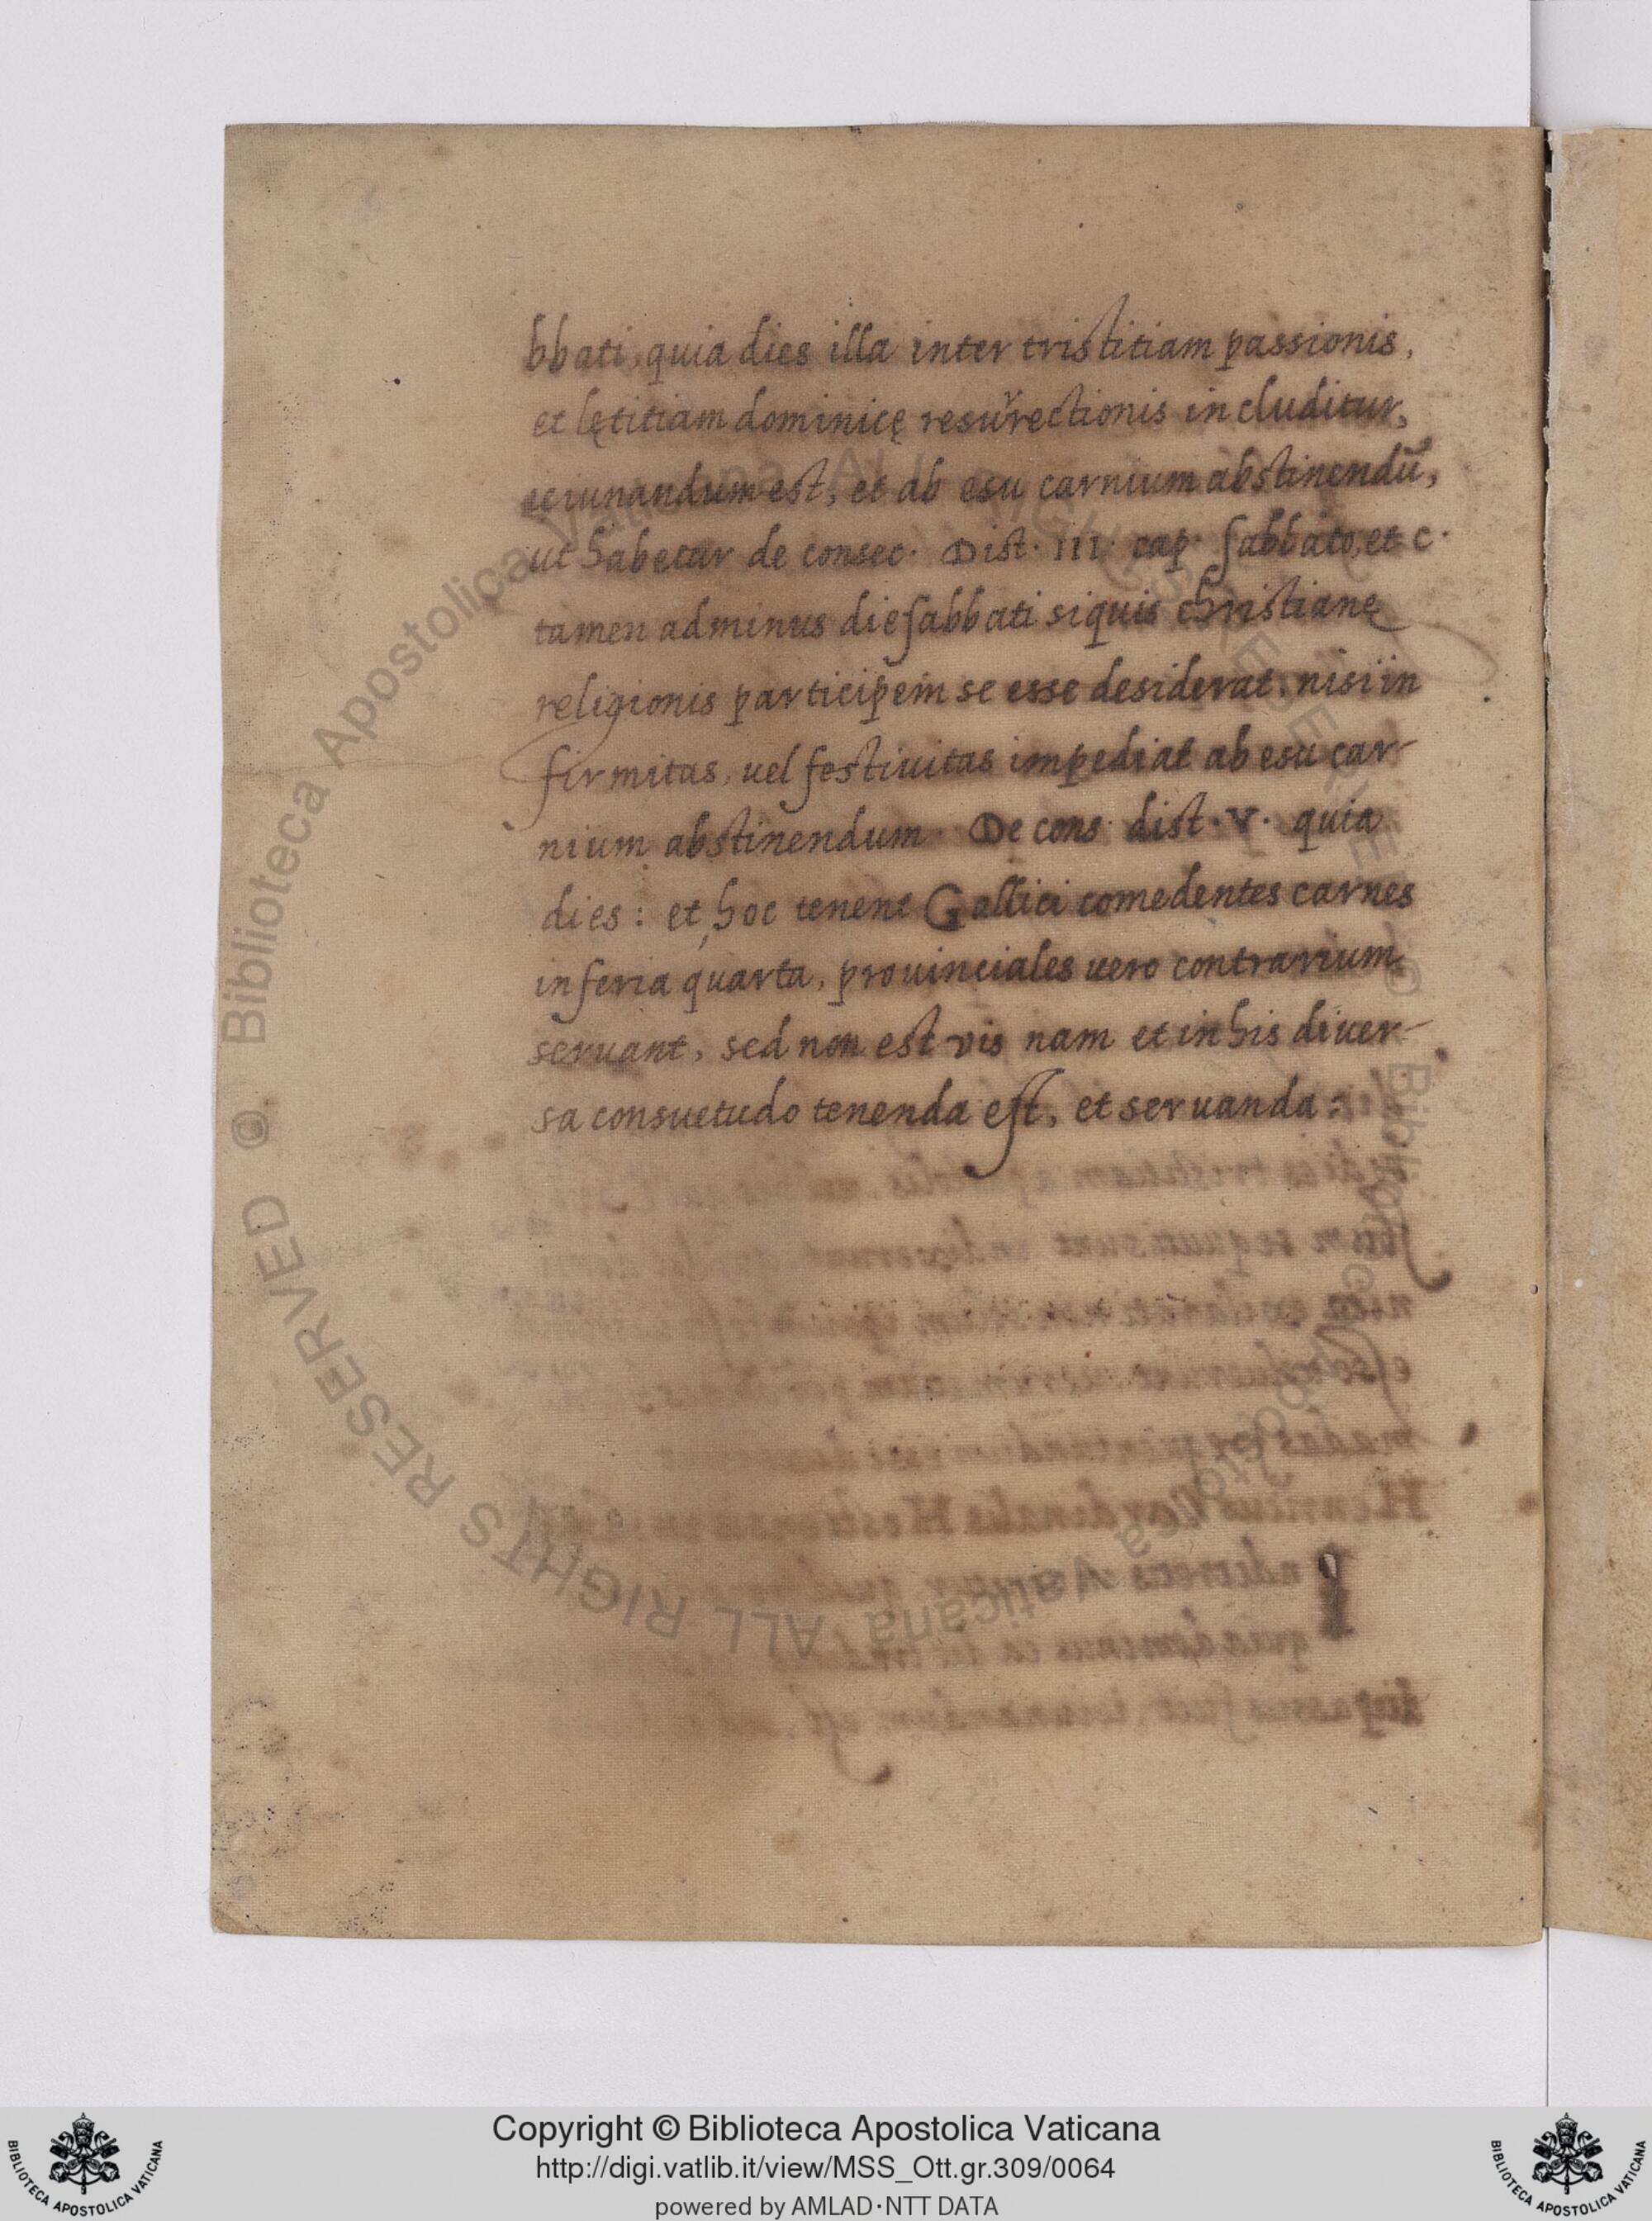 bbati, quia dies illa inter tristitiam passionis,
et lętitiam dominicę resurrectionis includitur,
ieiunandum est, et ab esu carnium abstinendū,
ut habetur de consec. Dist. III. cap. sabbato, et c.
tamen ad minus die sabbati siquis christianę
religionis participem se esse desiderat, nisi in
firmitas, uel festiuitas impediat ab esu car-
nium abstinendum. De cons. dist. V. quia
dies: et hoc tenent Gallici comedentes carnes
in feria quarta, prouinciales uero contrarium
seruant, sed non est vis nam et in his diuer-
sa consuetudo tenenda est, et seruanda:
Biblioteca Apostolica Vaticana ALL RIGHTS RESERVED ©
Copyright © Biblioteca Apostolica Vaticana
http://digi.vatlib.it/view/MSS_Ott.gr.309/0064
powered by AMLAD·NTT DATA
BIBLIOTECA APOSTOLICA VATICANA
BIBLIOTECA APOSTOLICA VATICANA